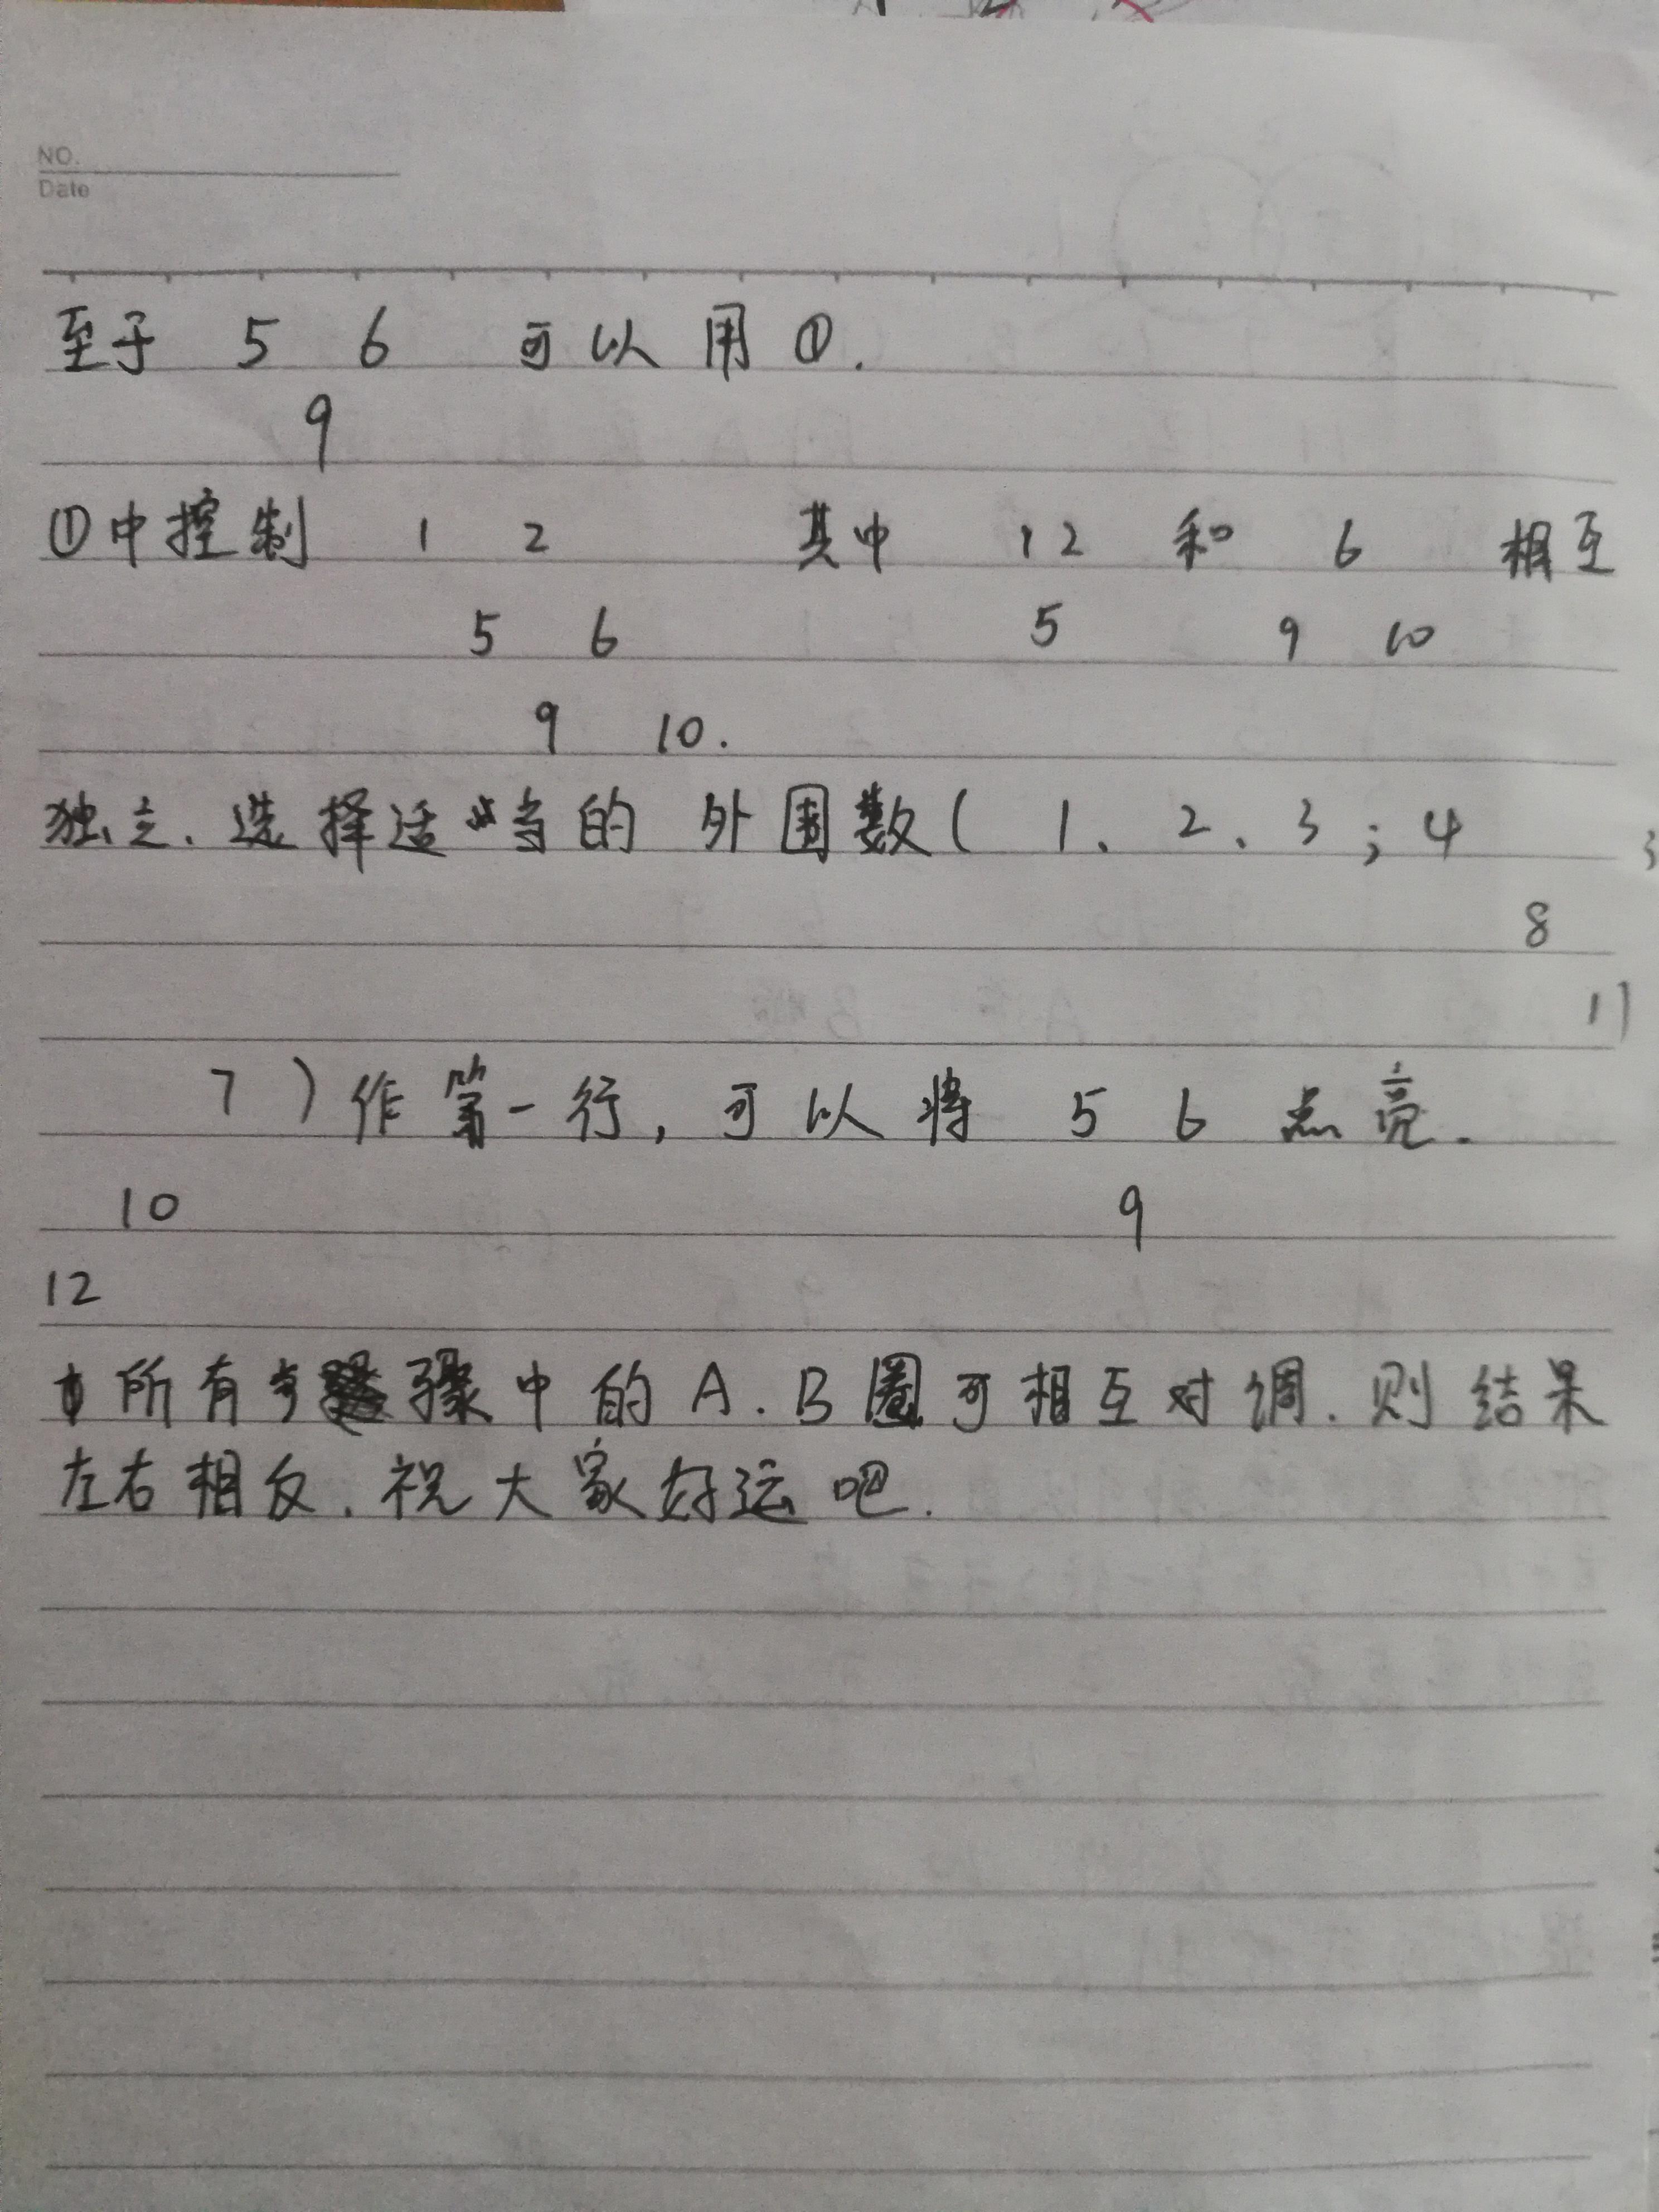 NO.
Date
至于 5 6 可以用①.
9
①中控制 1 2 其中 12 和 6 相互
5 6 5 9 10
9 10.
独立.选择适当的 外围数( 1、2、3;4 ;
8
11
7 )作第一行,可以将 5 6 点亮.
10 9
12
所有步骤中的A.B圈可相互对调.则结果
左右相反.祝大家好运吧.